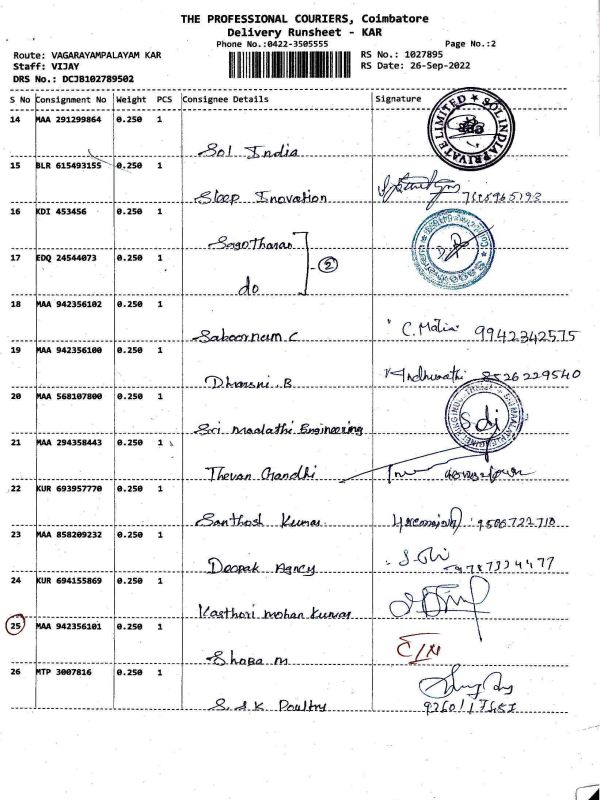 THE PROFESSIONAL COURIERS, Coimbatore
Delivery Runsheet - KAR
Phone No.:0422-3505555 Page No.:2
Route: VAGARAYAMPALAYAM KAR RS No.: 1027895
Staff: VIJAY RS Date: 26-Sep-2022
DRS No.: DCJB102789502
S No Consignment No Weight PCS Consignee Details Signature
14 MAA 291299864 0.250 1
Sol India
SOL INDIA PRIVATE LIMITED
15 BLR 615493155 0.250 1
Sleep Inovation
16 KDI 453456 0.250 1
Sago Tharan
17 EDQ 24544073 0.250 1
do 2
18 MAA 942356102 0.250 1
Saboornum C C. Malia 9942342575
19 MAA 942356100 0.250 1
Dharani. B 8526229540
20 MAA 568107800 0.250 1
Sri Maalathi Engineering
21 MAA 294358443 0.250 1
Thevan Gandhi
22 KUR 693957770 0.250 1
Santhosh Kumar 9506722710
23 MAA 858209232 0.250 1
Deepak Agncy
24 KUR 694155869 0.250 1
Kasthori mohan kumar
25 MAA 942356101 0.250 1
Shoba M
26 MTP 3007816 0.250 1
S.S.K Poultry